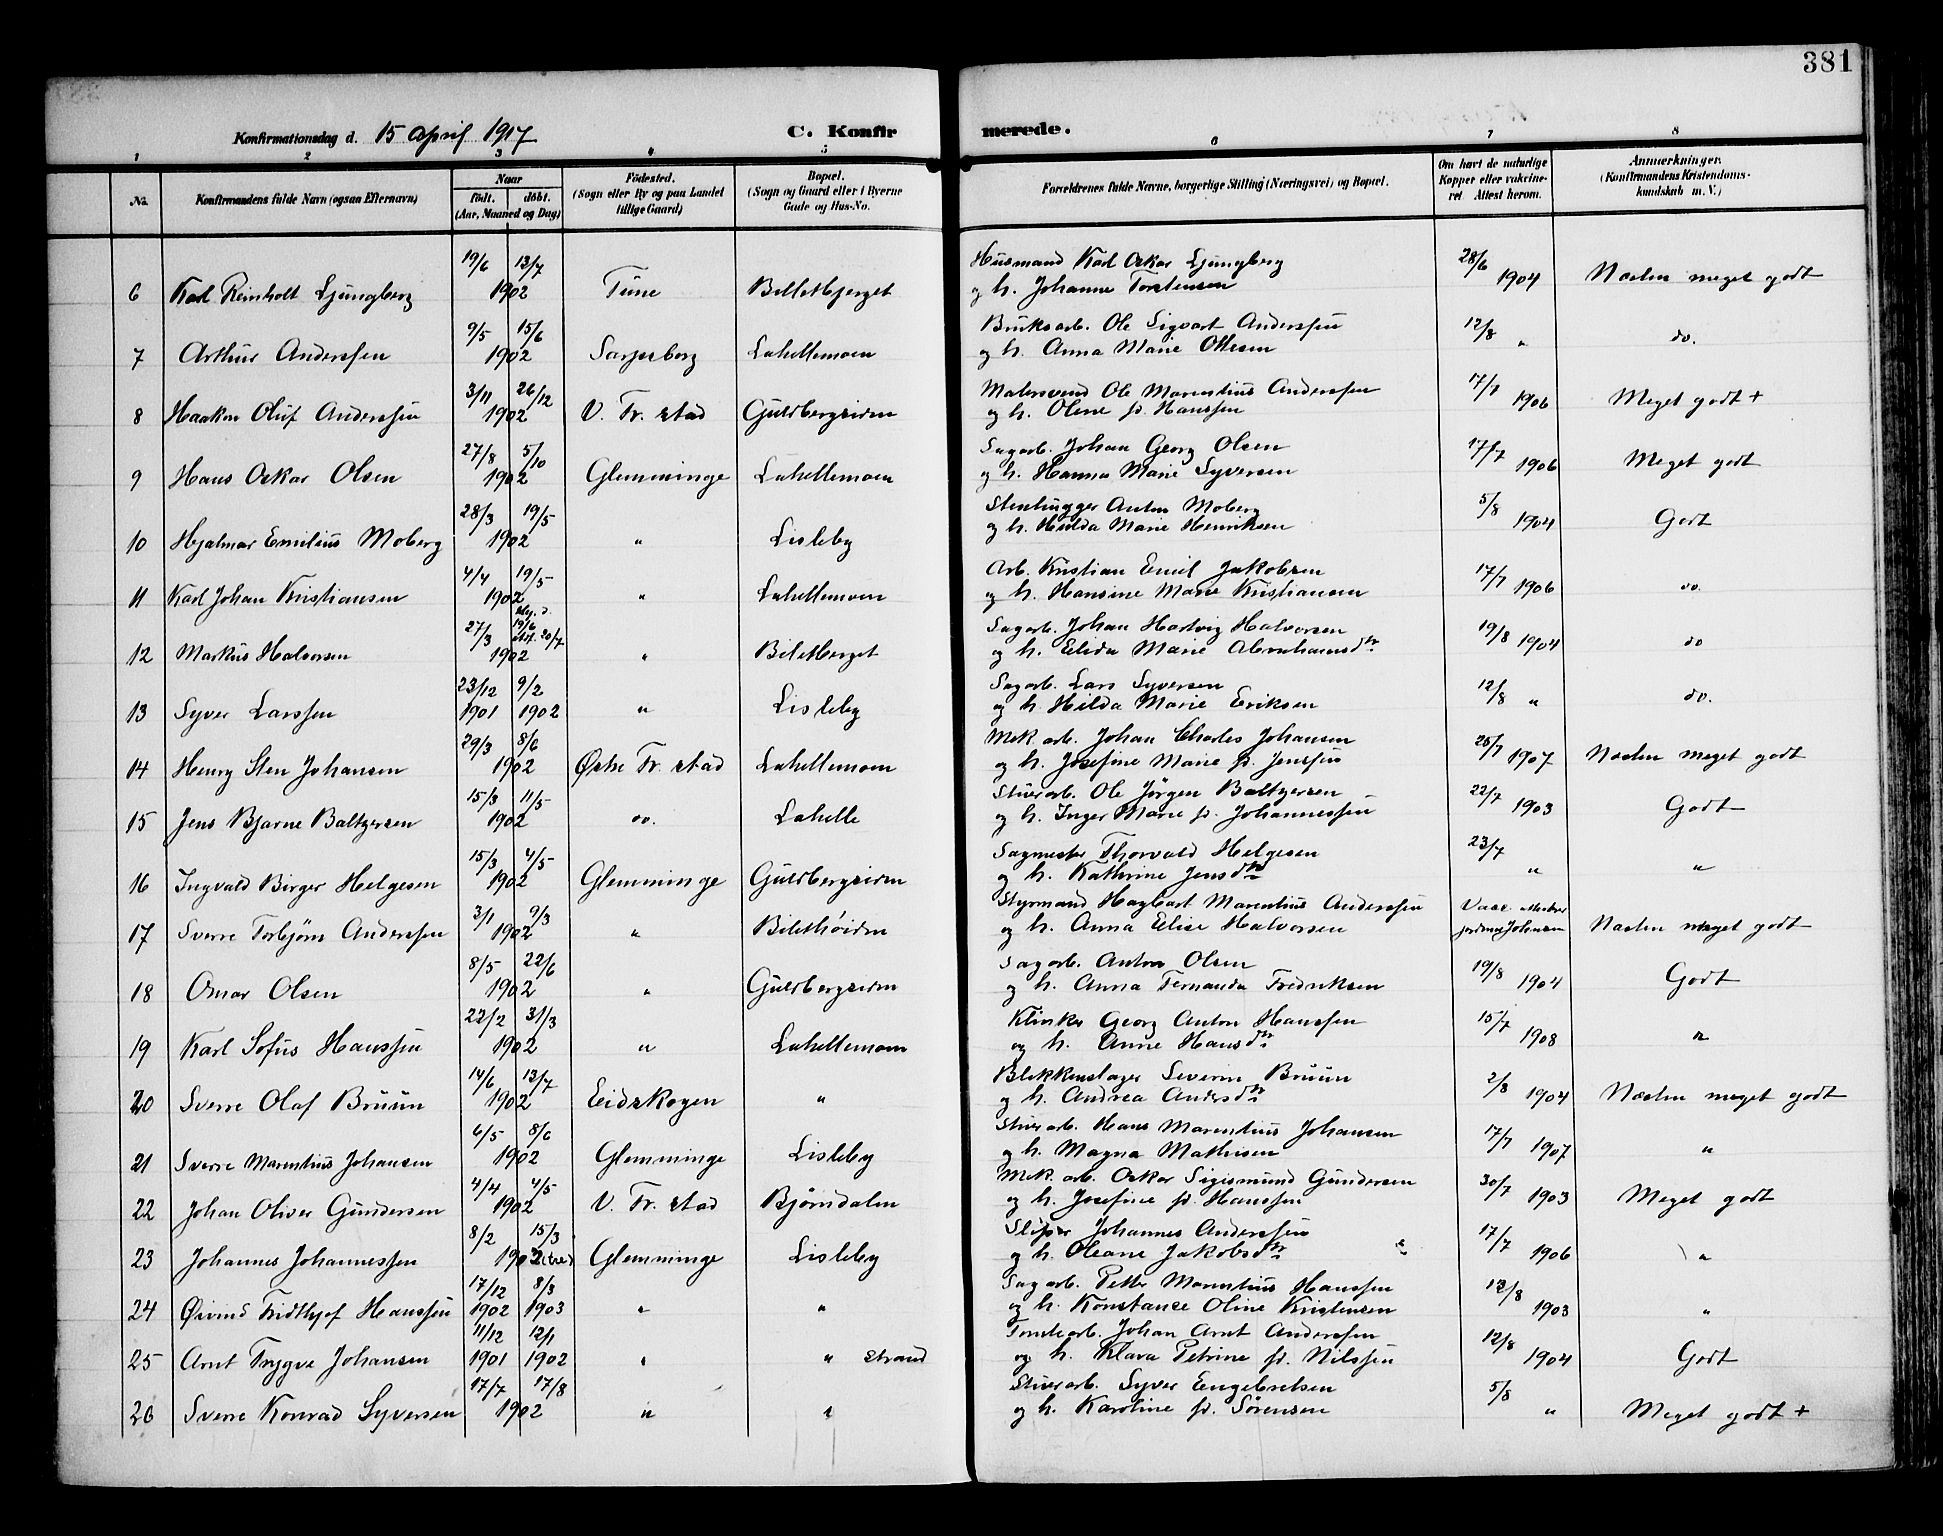 381
Konfirmationsdag d. 15 April 1917 C. Konfirmerede.
1 2 3 4 5 6 7 8
No. Konfirmandens fulde Navn (ogsaa Efternavn) Naar født. døbt. (Aar, Maaned og Dag) Fødested. (Sogn eller By og paa Landet tillige Gaard) Bopæl. (Sogn og Gaard eller i Byerne Gade og Hus-No. Forældrenes fulde Navne, borgerlige Stilling (Næringsvei) og Bopæl. Om havt de naturlige Kopper eller vakcineret Attest herom. Anmærkninger. (Konfirmandens Kristendomskundskab m. V.)
19/6 13/7 Husmand Karl Oskar Ljungberg 28/6
6 Karl Reinholt Ljungberg 1902 Tune Billetbjerget og h. Johanne Torstensen 1904 Næsten meget godt
9/5 15/6 Bruksarb. Ole Sigvart Anderssen 12/8
7 Arthur Anderssen 1902 Sarpsborg Lahellemoen og h. Anna Marie Ottesen " do.
3/11 26/12 Malersvend Ole Marentius Anderssen 17/7
8 Haakon Oluf Anderssen 1902 V. Fr. stad Guldbergsiden og h. Oline f. Hanssen 1906 Meget godt +
27/8 5/10 Sagarb. Johan Georg Olsen 17/7
9 Hans Oskar Olsen 1902 Glemminge Lahellemoen og h. Hanna Marie Syversen 1906 Meget godt
28/3 19/5 Stenhugger Anton Moberg 5/8
10 Hjalmar Emilius Moberg 1902 " Lisleby og h. Hulda Marie Henriksen 1904 Godt
4/4 19/5 Arb. Kristian Emil Jakobsen 17/7
11 Karl Johan Kristiansen 1902 " Lahellemoen og h. Hansine Marie Kristiansen 1906 do.
27/3 19/6 20/7 Sagarb. Johan Hartvig Halvorsen 19/8
12 Markus Halvorsen 1902 " Billetberget og h. Elida Marie Abrahamsdtr 1904 do
23/12 9/2 Sagarb. Lars Syversen 12/8
13 Syver Larssen 1901 1902 " Lisleby og h. Hilda Marie Eriksen " do.
29/3 8/6 Mek. arb. Johan Charles Johansen 25/7
14 Henry Sten Johansen 1902 Østre Fr. stad Lahellemoen og h. Josefine Marie f. Jenssen 1907 Næsten meget godt
15/3 11/5 Stuerarb. Ole Jørgen Baltzersen 22/7
15 Jens Bjarne Baltzersen 1902 do. Lahelle og h. Inger Marie f. Johannessen 1903 Godt
15/3 4/5 Sagmester Thorvald Helgesen 23/7
16 Ingvald Birger Helgesen 1902 Glemminge Guldbergsiden og h. Kathrine Jensdtr " "
3/1 9/3 Styrmand Hagbart Marentius Anderssen Vacc.
17 Sverre Torbjørn Anderssen 1902 " Billethøiden og h. Anna Elise Halvorsen Johnsen Næsten meget godt
8/5 22/6 Sagarb. Anton Olsen 19/8
18 Omar Olsen 1902 " Guldbergsiden og h. Anna Fernanda Fredriksen 1904 Godt
22/2 31/3 Klinker Georg Anton Hanssen 15/7
19 Karl Sofus Hanssen 1902 " Lahellemoen og h. Anne Hansdtr 1908 "
14/6 13/7 Blekkenslager Severin Bruun 2/8
20 Sverre Olaf Bruun 1902 Eidskogen " og h. Andrea Andersdtr 1904 Næsten meget godt
6/5 8/6 Stuerarb. Hans Marentius Johansen 17/7
21 Sverre Marentius Johansen 1902 Glemminge Lisleby og h. Magna Mathisen 1907 "
4/4 4/5 Mek. arb. Oskar Sigismund Gundersen 30/7
22 Johan Oliver Gundersen 1902 V. Fr. stad Bjørndalen og h. Josefine f. Hanssen 1903 Meget godt
8/2 15/3 Sliper Johannes Anderssen 17/7
23 Johannes Johannessen 1902 Glemminge Lisleby og h. Oleane Jakobsdtr 1906 "
17/12 8/3 Sagarb. Petter Marentius Hanssen 12/8
24 Øivind Fridthjof Hanssen 1902 1903 " " og h. Konstanse Oline Kristensen 1903 "
11/12 12/1 Tomtearb. Johan Arnt Anderssen 12/8
25 Arnt Trygve Johansen 1901 1902 " " strand og h. Klara Petrine f. Nilssen 1904 Godt
17/7 17/8 Stuerarb. Syver Engebretsen 5/8
26 Sverre Konrad Syversen 1902 " " og h. Karoline f. Sørensen " Meget godt +